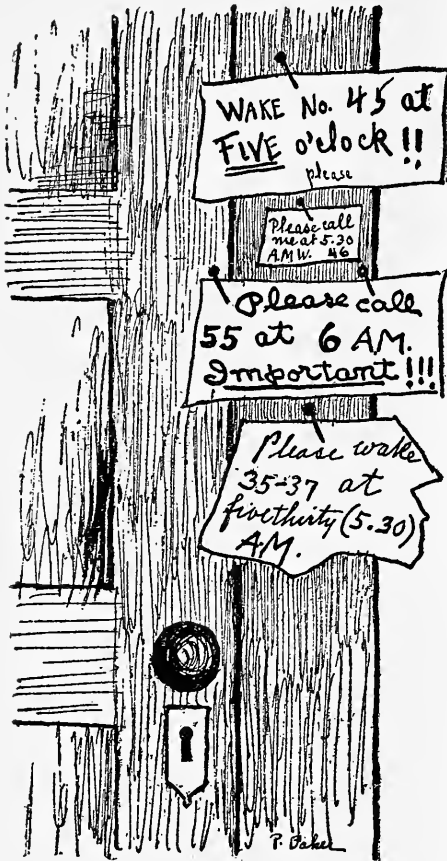 WAKE No. 45 at
FIVE o'clock !!
please
Please call
me at 5.30
A.M. W. 46
Please call
55 at 6 A.M.
Important !!!
Please wake
35-37 at
fivethirty (5.30)
A.M.
P. Baker